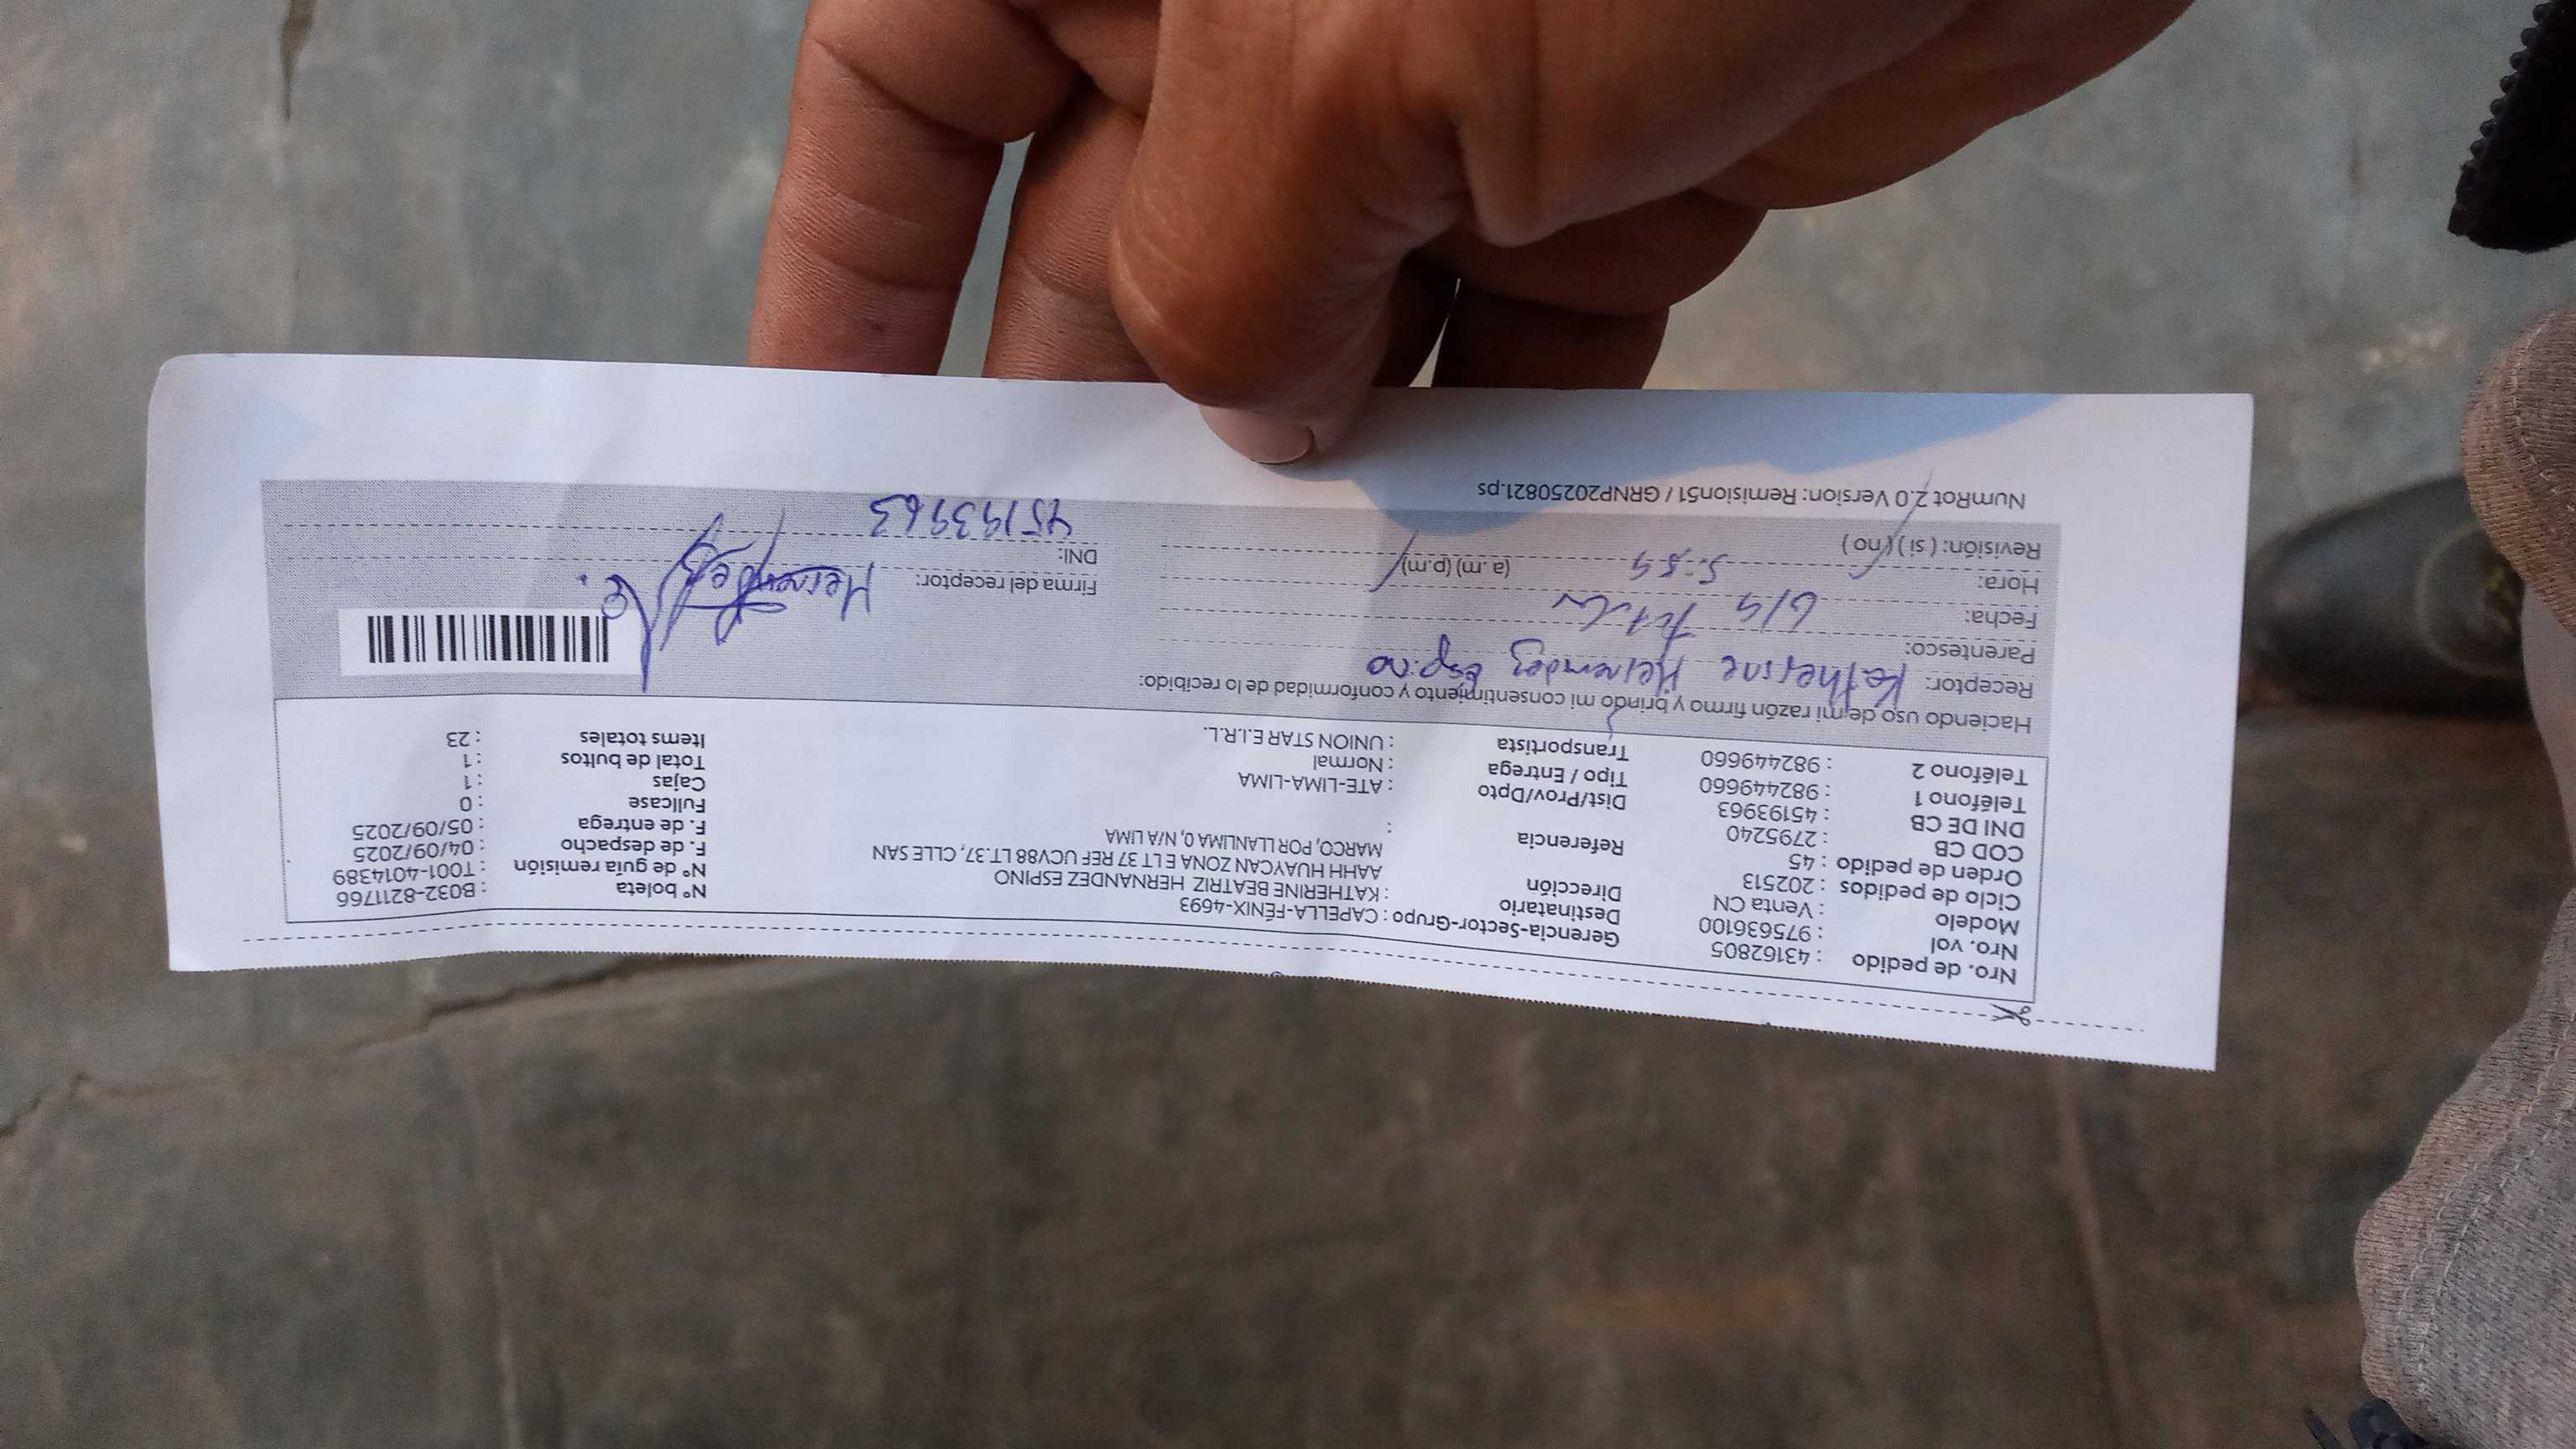 Nro. de pedido : 43162805
Nro. vol : 975636100
Modelo : Venta CN
Ciclo de pedidos : 202513
Orden de pedido : 45
COD CB : 2795240
DNI DE CB : 45193963
Teléfono 1 : 982449660
Teléfono 2 : 982449660
Gerencia-Sector-Grupo : CAPELLA-FÉNIX-4693
Destinatario : KATHERINE BEATRIZ HERNANDEZ ESPINO
Dirección AAHH HUAYCAN ZONA E LT 37 REF UCV88 LT.37, CLLE SAN
MARCO, POR LLANLIMA 0, N/A LIMA
Referencia :
Dist/Prov/Dpto : ATE-LIMA-LIMA
Tipo / Entrega : Normal
Transportista : UNION STAR E.I.R.L.
N° boleta : B032-8211766
N° de guía remisión : T001-4014389
F. de despacho : 04/09/2025
F. de entrega : 05/09/2025
Fullcase : 0
Cajas : 1
Total de bultos : 1
Items totales : 23
Haciendo uso de mi razón firmo y brindo mi consentimiento y conformidad de lo recibido:
Receptor: Katherine Hernandez Espino
Parentesco: Titular
Fecha: 6/9
Hora: 5:59 (a.m) (p.m)
Revisión: ( si ) ( no )
Firma del receptor: Hernandez E.
DNI: 45193963
NumRot 2.0 Version: Remision51 / GRNP20250821.ps